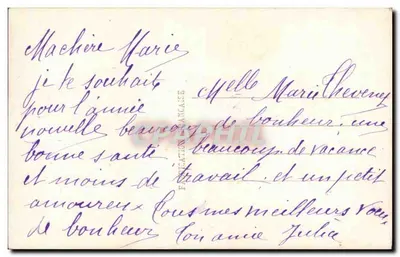 Ma chère Marie
je te souhaite
pour l'année
Melle Marie Thevenez
nouvelle beaucoup de bonheur. une
bonne santé beaucoup de vacance
et moins de travail. et un petit
amoureux Tous mes meilleurs vœux
de bonheur Ton amie Julia
FABRICATION FRANÇAISE